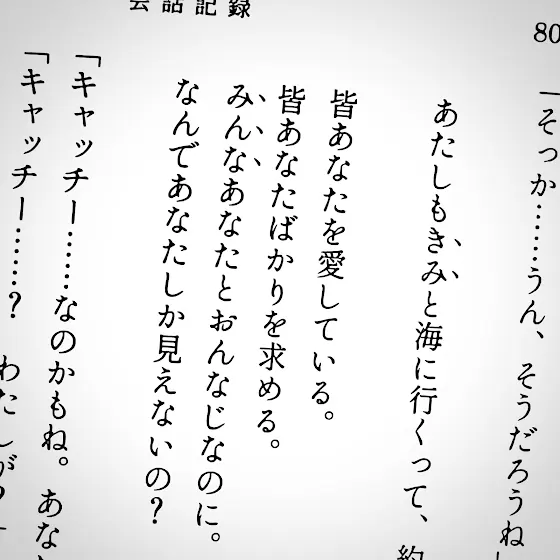 会話記録
80
「そっか……うん、そうだろうね」
あたしもきみと海に行くって、約
皆あなたを愛している。
皆あなたばかりを求める。
みんなあなたとおんなじなのに。
なんであなたしか見えないの？
「キャッチー……なのかもね。あな
「キャッチー……？　わたしが？